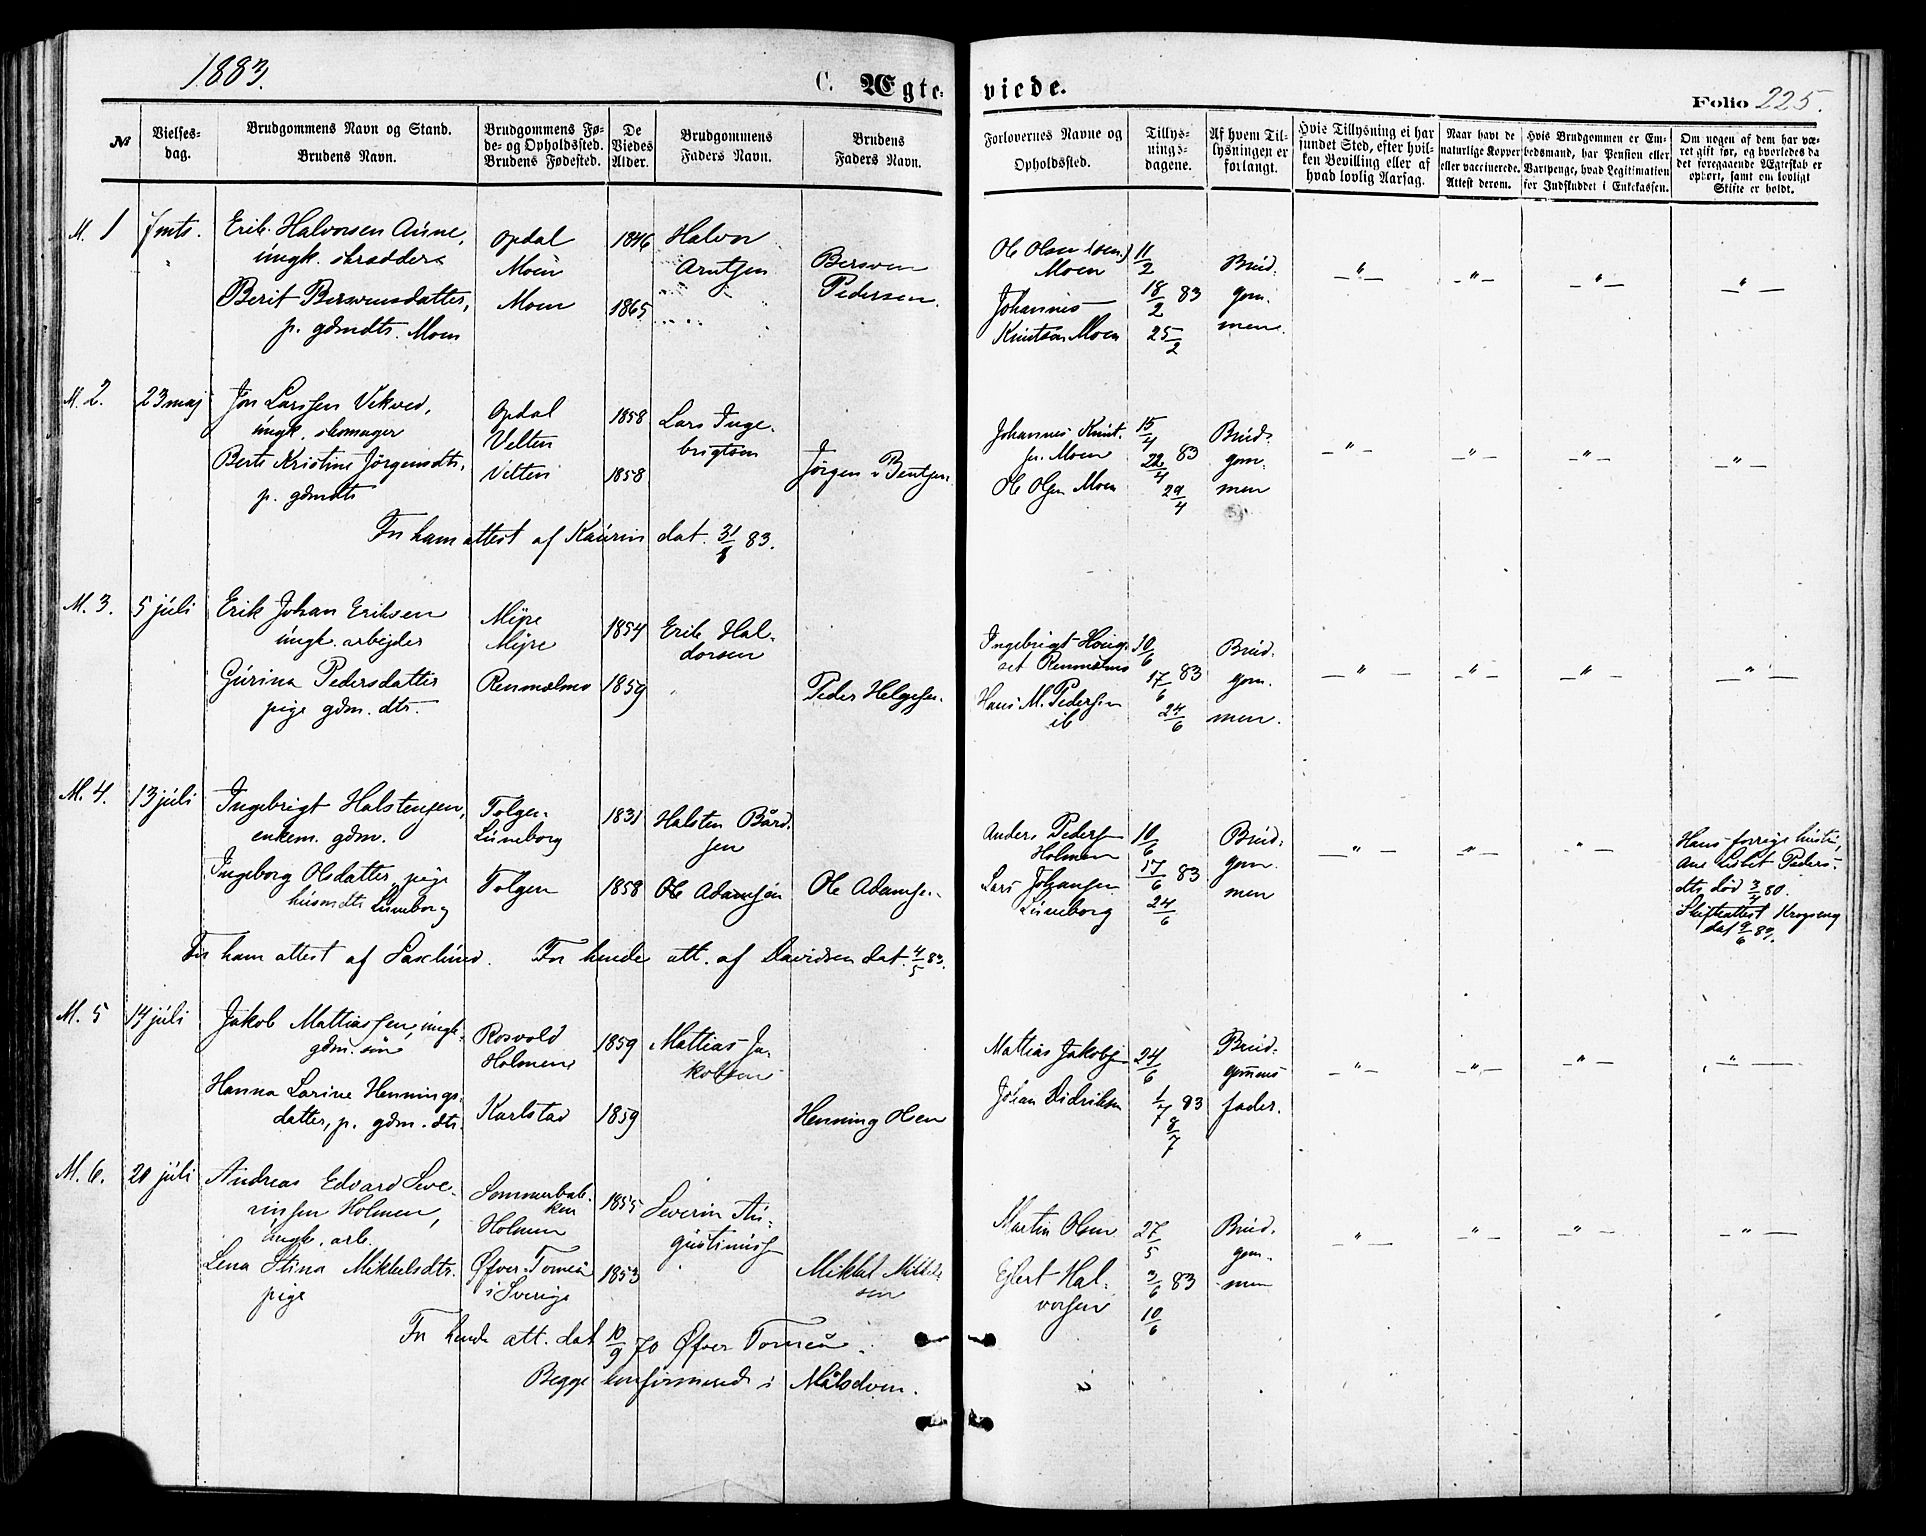 1883.
C. Ægte-
viede.
Folio 225.
No
Vielses-
dag.
Brudgommens Navn og Stand.
Brudens Navn.
Brudgommens Fø-
de- og Opholdssted.
Brudens Fødested.
De
Viedes
Alder.
Brudgommens
Faders Navn.
Brudens
Faders Navn.
Forlovernes Navne og
Opholdssted.
Tillys-
nings-
dagene.
Af hvem Til-
lysningen er
forlangt.
Hvis Tillysning ei har
fundet Sted, efter hvil-
ken Bevilling eller af
hvad lovlig Aarsag.
Naar havt de
naturlige Kopper
eller vaccinerede.
Attest derom.
Hvis Brudgommen er Em-
bedsmand, har Pension eller
Vartpenge, hvad Legitimation
for Indskuddet i Enkekassen.
Om nogen af dem har væ-
ret gift før, og hvorledes da
det foregaaende Ægteskab er
ophørt, samt om lovligt
Skifte er holdt.
M. 1
7 mts.
Erik Halvorsen Aune,
ungk. skrædder
Berit Bersvensdatter,
p. gdmdtr. Moen
Opdal
Moen
Moen
1846
1865
Halvor
Arntsen
Bersven
Pedersen.
Ole Olsen (sen.)
Moen
Johannes
Knutsen Moen
11/2
18/2 83
25/2
Brud-
gom-
men.
M. 2.
23 maj
Jon Larssen Vekved,
ungk. skomager
Berte Kristine Jørgensdtr.,
p. gdmdtr
Opdal
Velten
Velten
1858
1858
Lars Inge-
brigtsen
Jørgen Bentsen
Johannes Knut-
sen Moen
Ole Olsen Moen
15/4
22/4 83
29/4
Brud-
gom-
men
For ham attest af Kaurin dat. 31/1 83.
M. 3.
5 juli
Erik Johan Eriksen
ungk. arbejder
Gurina Pedersdatter
pige gdm. dtr.
Myre
Myre
Renmælmo
1854
1859
Erik Hal-
dorsen
Peder Helgesen.
Ingebrigt Houg-
set Renmælmo
Hans M. Pedersen
ib
10/6
17/6 83
24/6
Brud-
gom-
men.
M. 4.
13 juli
Ingebrigt Halstensen,
enkem. gdm.
Ingeborg Olsdatter, pige
husmdtr Luneborg
Tolgen
Luneborg
Tolgen
1831
1858
Halsten Bård-
sen
Ole Adamsen
Ole Adamsen
Anders Pedersen
Holmen
Lars Johansen
Luneborg
10/6
17/6 83
24/6
Brud-
gom-
men
Hans forrige hustru,
Ane Lisbet Peders-
dtr, død 3/4 80.
Skifteattest Krogseng
dat 9/6 83.
For ham attest af Saxlund. For hende att. af Davidsen dat. 4/5 83.
M. 5
14 juli
Jakob Mattiassen, ungk.
gdm. søn
Hanna Larine Hennings-
datter, p. gdm. dtr.
Rosvold
Holmen
Karlstad
1859
1859
Mattias Ja-
kobsen
Henning Olsen
Mattias Jakobsen
Johan Didriksen
24/6
1/7 83
8/7
Brud-
gommens
fader.
M. 6.
20 juli
Andreas Edvard Seve-
rinsen Holmen,
ungk. arb.
Lena Stina Mikkelsdtr.
pige
Sommerbak-
ken
Holmen
Øfver Torneå
i Sverige
1855
1853
Severin Au-
gustinusen
Mikkel Mikkel-
sen
Martin Olsen
Ejlert Hal-
vorsen
27/5
3/6 83
10/6
Brud-
gom-
men
For hende att. dat 10/9 70 Øfver Torneå.
Begge konfirmerede i Målselven.